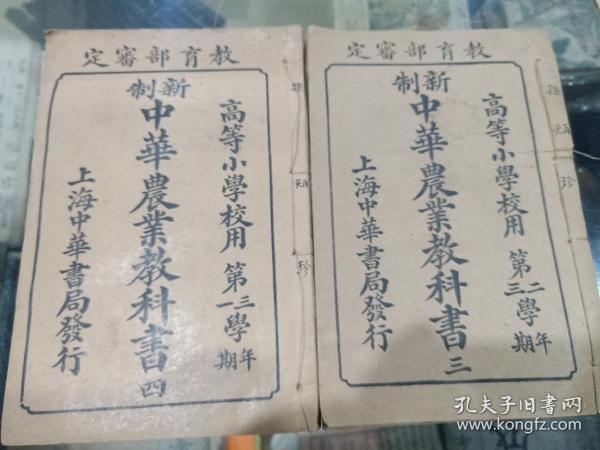 教育部審定
高等小學校用 第二三學年期
新制
中華農業教科書 三
上海中華書局發行
珍
教育部審定
高等小學校用 第三一學年期
新制
中華農業教科書 四
上海中華書局發行
珍
孔夫子旧书网
www.kongfz.com